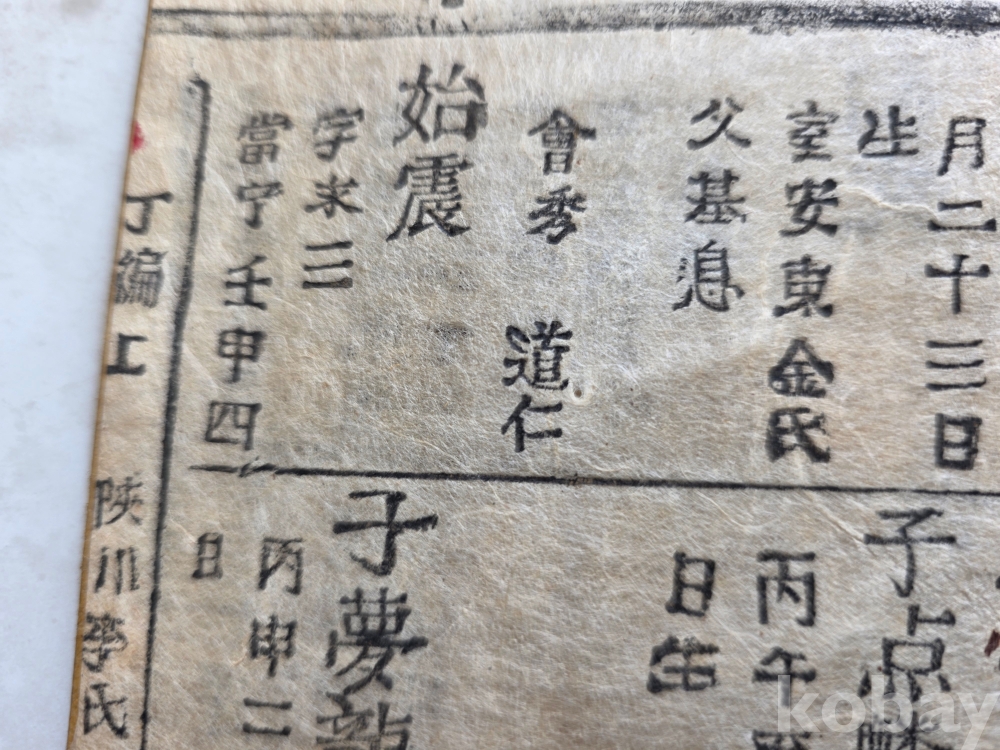 月二十三日
生
室安東金氏
父基
會秀 道仁
始震
字来三
當宁壬申四
子
丙午
日生
子夢
丙申二
日
丁編上 陜川李氏
kobay